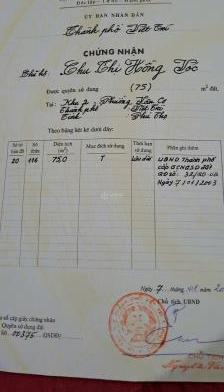 Độc lập - Tự do - Hạnh phúc
ỦY BAN NHÂN DÂN
Thành phố Việt Trì
CHỨNG NHẬN
Chủ hộ: Chu Thị Hồng
Được quyền sử dụng (75) m² đất.
Tại: Khu 2 Phường Vân Cơ
Thành phố Việt Trì
Tỉnh Phú Thọ
Theo bảng kê dưới đây:
Số tờ bản đồ Số thửa Diện tích (m²) Mục đích sử dụng Thời hạn sử dụng Phần ghi thêm
20 116 75,0 T Lâu dài UBND Thành phố
cấp GCNQSD đất
Ngày 7/01/2003
Ngày 7 tháng
Chủ tịch UBND
số cấp giấy chứng nhận
Quyền sử dụng đất
Số: 00375 QSDĐ/